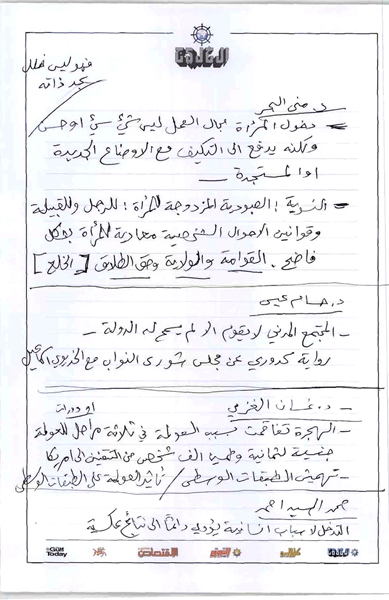 الخليج
فهو ليس فعل
بحد ذاته
د. منى البحر
- دخول المرأة مجال العمل ليس شيء سيء او حسن
ولكنه يدفع الى التكيف مع الاوضاع الجديدة
او المستجدة -
- النسوية: العبودية المزدوجة للمرأة: للرجل وللقبيلة
وقوانين الاحوال الشخصية معادية للمرأة بشكل
فاضح. القوامة والولاية وحق الطلاق [الخلع]
د. حسام عيسى
- المجتمع المدني لا يقوم الا لم يسمح له الدولة -
رواية كدوري عن مجلس شورى النواب مع الخديوي اسماعيل
- د. غسان الغزي او دورات
- الهجرة تفاقمت بسبب العولمة في ثلاثة مراحل للعولمة
الف شخص من المثقفين الى امريكا
- تهميش الطبقات الوسطى / تأثير العولمة على الطبقات الوسطى
السيد احمد
التدخل لاسباب انسانية يؤدي دائما الى نتائج عكسية
Gulf Today
الاقتصادي
الخليج